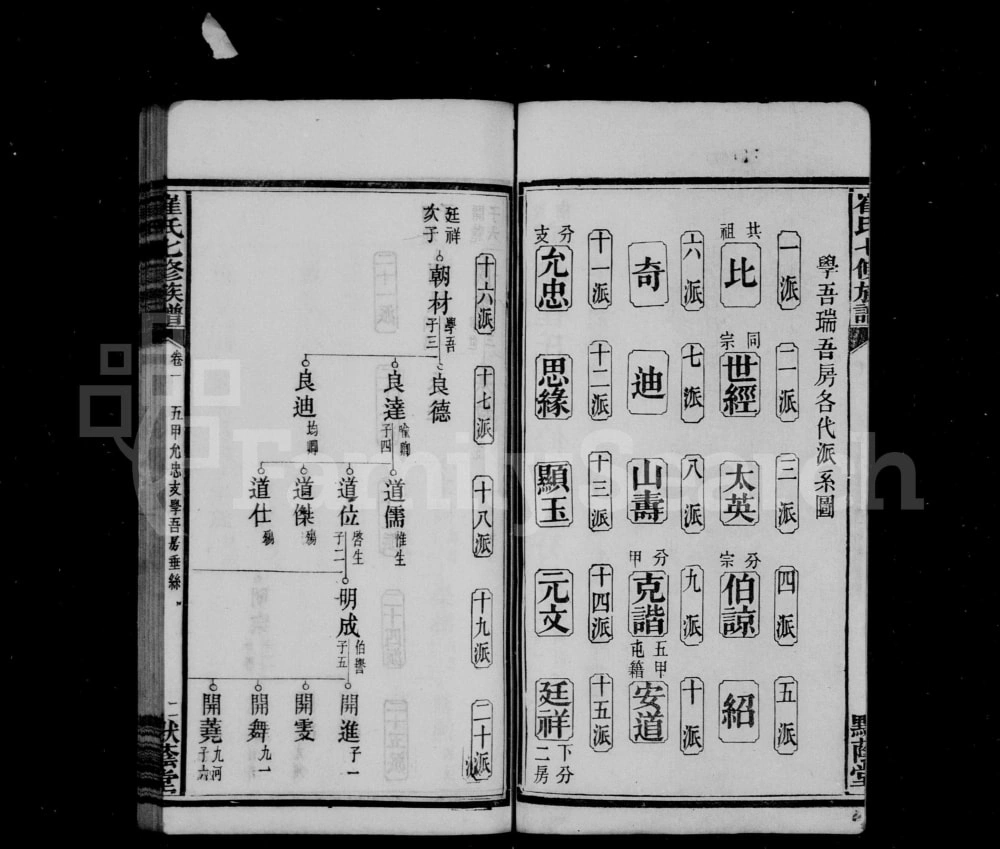 崔氏七修族譜
默蔭堂
學吾瑞吾房各代派系圖
一派 二派 三派 四派 五派
共祖 比 同宗 世經 太英 分宗 伯諒 紹
六派 七派 八派 九派 十派
奇 迪 山壽 分甲 克諧 五甲屯籍 安道
十一派 十二派 十三派 十四派 十五派
分支 允忠 思緣 顯玉 元文 廷祥 下分二房
十六派 十七派 十八派 十九派 二十派
廷祥次子 朝材 學吾 子三 良德
良達 喻卿 子四 道儒 惟生
良迪 均卿 道位 啓生 子二 明成 伯譽 子五 開進 子一
道傑 殤 開雯
道仕 殤 開舞 九一
開蕘 九河 子六
崔氏七修族譜
卷一 五甲允忠支學吾房垂絲 二
默蔭堂
FamilySearch